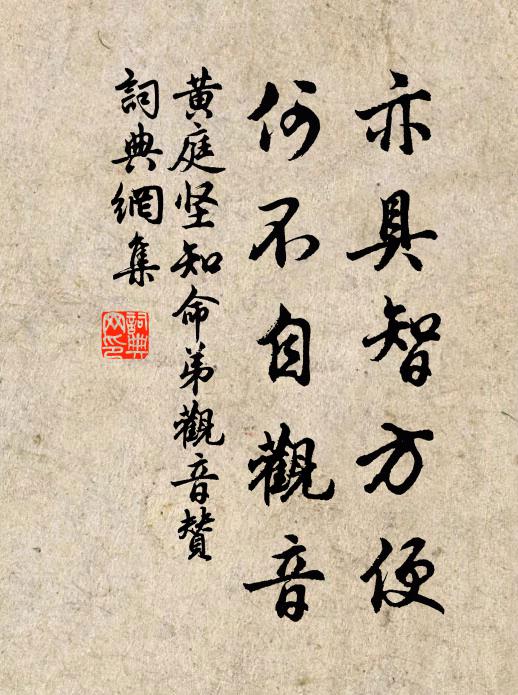 亦具智方便
何不自觀音
黃庭坚知命弟觀音贊
詞典網集
詞典網印